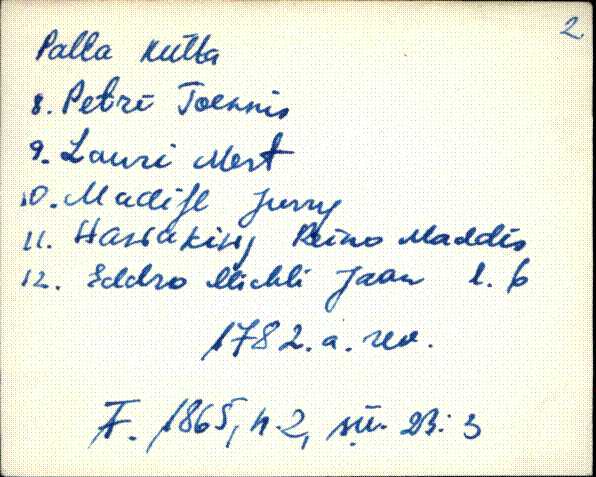 2.
Palla Külla
8. Petri Toennis
9. Lauri Mert
10. Madise Jurry
11. Hassakivy Reino Maddis
12. Eddro Michli Jaan l. 6
1782. a. rev.
F. 1865, n. 2, sü. 23: 3